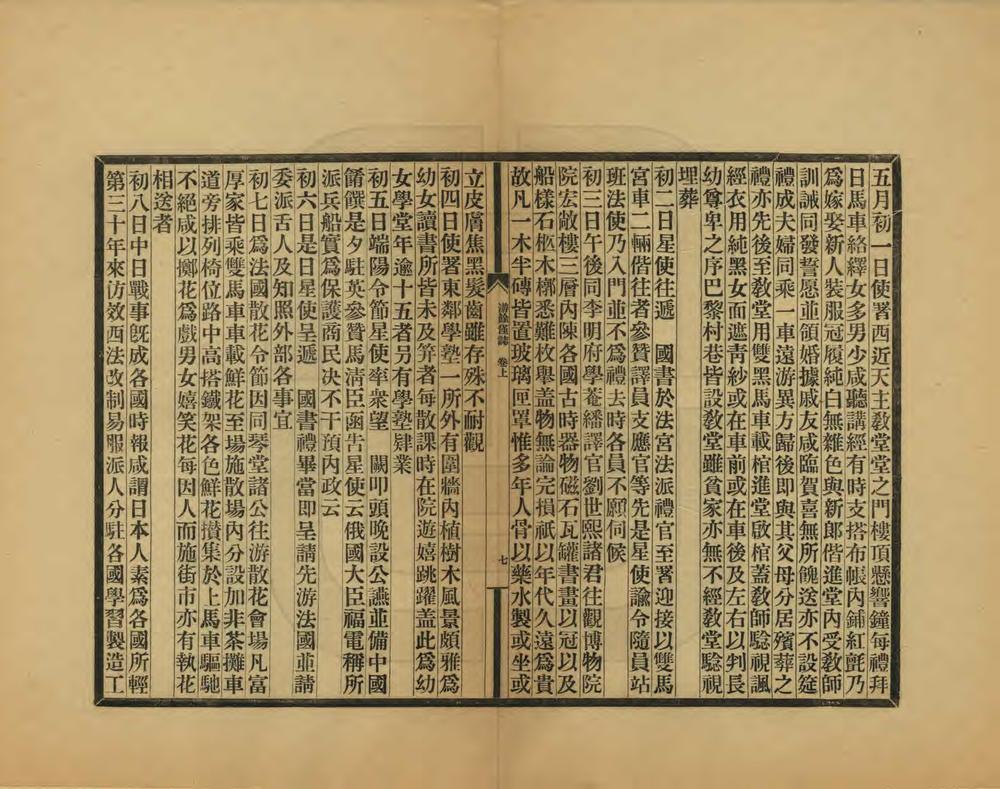 五月初一日使署西近天主敎堂堂之門樓頂懸響鐘每禮拜
日馬車絡繹女多男少咸聽講經有時支搭布帳內鋪紅氈乃
爲嫁娶新人裝服冠履純白無雜色與新郎偕進堂內受敎師
訓誡同發誓愿並領婚據戚友咸臨賀喜無所餽送亦不設筵
禮成夫婦同乘一車遠游異方歸後即與其父母分居殯葬之
禮亦先後至敎堂用雙黑馬車載棺進堂啟棺蓋敎師騐視諷
經衣用純黑女面遮靑紗或在車前或在車後及左右以判長
幼尊卑之序巴黎村巷皆設敎堂雖貧家亦無不經敎堂騐視
埋葬
初二日星使往遞　國書於法宮法派禮官至署迎接以雙馬
宮車二輛偕往者參贊譯員支應官等先是星使諭令隨員站
班法使乃入門並不爲禮去時各員不願伺候
初三日午後同李明府學菴繙譯官劉世熙諸君往觀博物院
院宏敞樓三層內陳各國古時器物磁石瓦罐書畫以冠以及
船樣石柩木槨悉難枚舉盖物無論完損祇以年代久遠爲貴
故凡一木半磚皆置玻璃匣罩惟多年人骨以藥水製或坐或
游餘僅誌　卷上　七
立皮膚焦黑髮齒雖存殊不耐觀
初四日使署東鄰學塾一所外有圍牆內植樹木風景頗雅爲
幼女讀書所皆未及笄者每散課時在院遊嬉跳躍盖此爲幼
女學堂年逾十五者另有學塾肄業
初五日端陽令節星使率衆望　闕叩頭晚設公讌並備中國
餚饌是夕駐英參贊馬淸臣函吿星使云俄國大臣福電稱所
派兵船實爲保護商民决不干預內政云
初六日是日星使呈遞　國書禮畢當即呈請先游法國並請
委派舌人及知照外部各事宜
初七日爲法國散花令節因同琴堂諸公往游散花會塲凡富
厚家皆乘雙馬車車載鮮花至塲施散塲內分設加非茶攤車
道旁排列椅位路中高搭鐵架各色鮮花攢集於上馬車驅馳
不絕咸以擲花爲戲男女嬉笑花每因人而施街市亦有執花
相送者
初八日中日戰事旣成各國時報咸謂日本人素爲各國所輕
第三十年來仿效西法改制易服派人分駐各國學習製造工